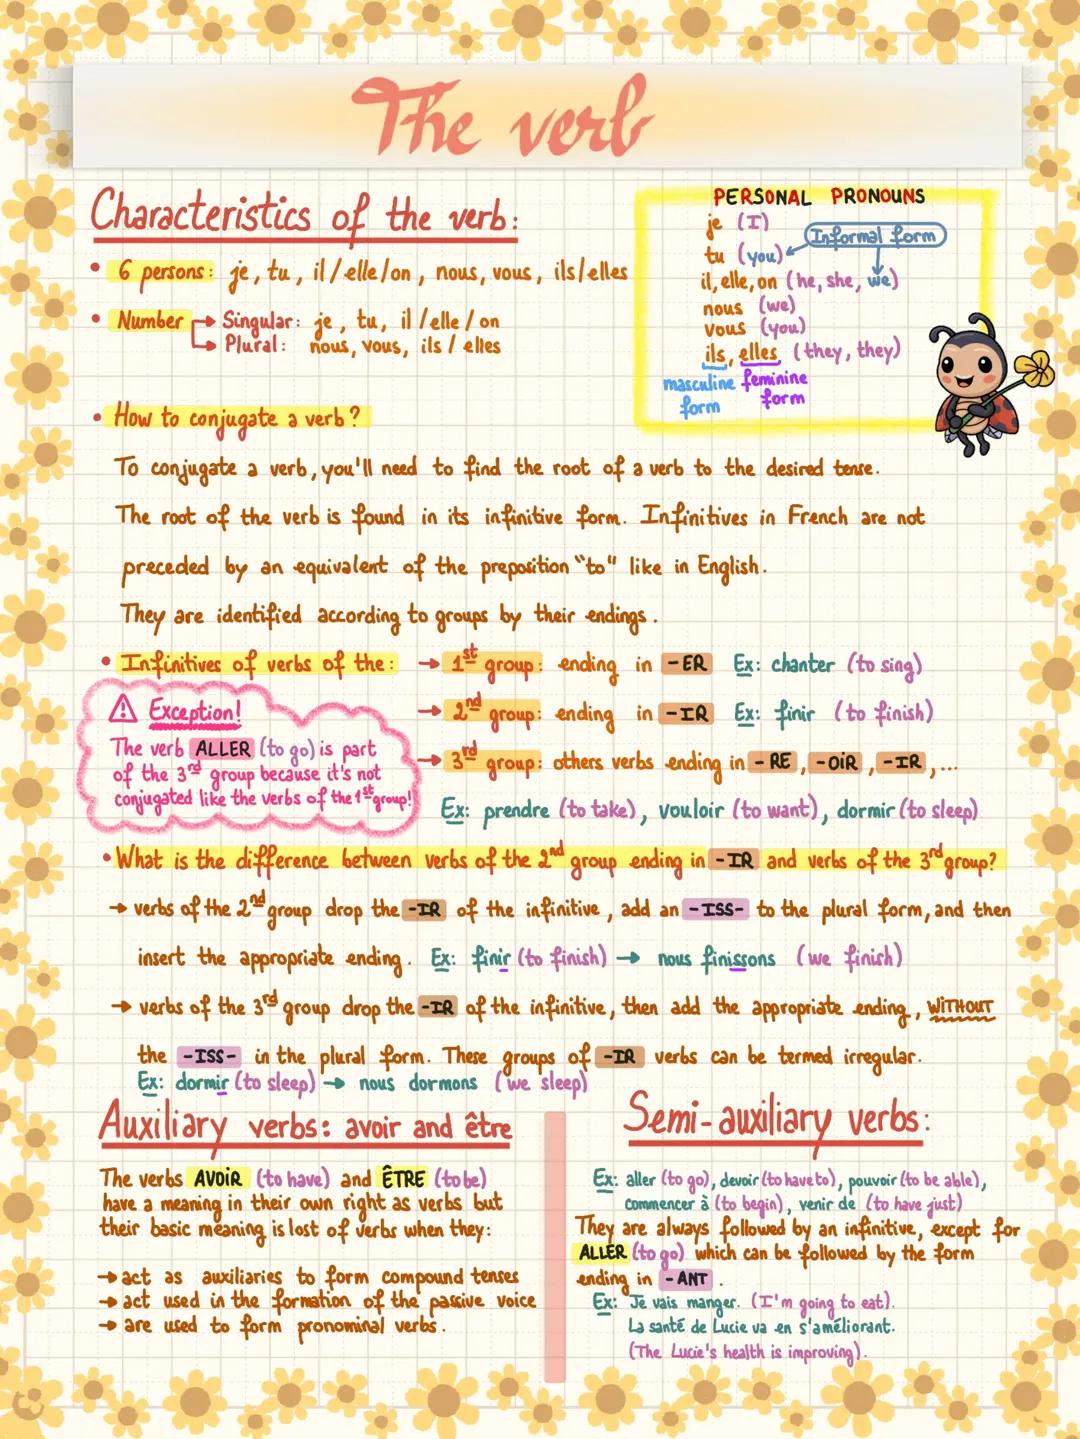 The verb
Characteristics of the verb:
• 6 persons: je, tu, il/elle/on, nous, vous, ils/elles
• Number → Singular: je, tu, il/elle/on
→ Plural: nous, vous, ils/elles
PERSONAL PRONOUNS
je (I)
tu (you) Informal form
il, elle, on (he, she, we)
nous (we)
vous (you)
ils, elles (they, they)
masculine form
feminine form
• How to conjugate a verb?
To conjugate a verb, you'll need to find the root of a verb to the desired tense.
The root of the verb is found in its infinitive form. Infinitives in French are not
preceded by an equivalent of the preposition "to" like in English.
They are identified according to groups by their endings.
• Infinitives of verbs of the: → 1st group: ending in -ER Ex: chanter (to sing)
→ 2nd group: ending in -IR Ex: finir (to finish)
→ 3rd group: others verbs ending in -RE, -OiR, -IR, ...
Ex: prendre (to take), vouloir (to want), dormir (to sleep)
⚠ Exception!
The verb ALLER (to go) is part
of the 3rd group because it's not
conjugated like the verbs of the 1st group!
• What is the difference between verbs of the 2nd group ending in -IR and verbs of the 3rd group?
→ verbs of the 2nd group drop the -IR of the infinitive, add an -ISS- to the plural form, and then
insert the appropriate ending. Ex: finir (to finish) → nous finissons (we finish)
→ verbs of the 3rd group drop the -IR of the infinitive, then add the appropriate ending, WiTHOUT
the -ISS- in the plural form. These groups of -IR verbs can be termed irregular.
Ex: dormir (to sleep) → nous dormons (we sleep)
Auxiliary verbs: avoir and être
The verbs AVOiR (to have) and ÊTRE (to be)
have a meaning in their own right as verbs but
their basic meaning is lost of verbs when they:
→ act as auxiliaries to form compound tenses
→ act used in the formation of the passive voice
→ are used to form pronominal verbs.
Semi-auxiliary verbs:
Ex: aller (to go), devoir (to have to), pouvoir (to be able),
commencer à (to begin), venir de (to have just)
They are always followed by an infinitive, except for
ALLER (to go) which can be followed by the form
ending in -ANT.
Ex: Je vais manger. (I'm going to eat).
La santé de Lucie va en s'améliorant.
(The Lucie's health is improving).